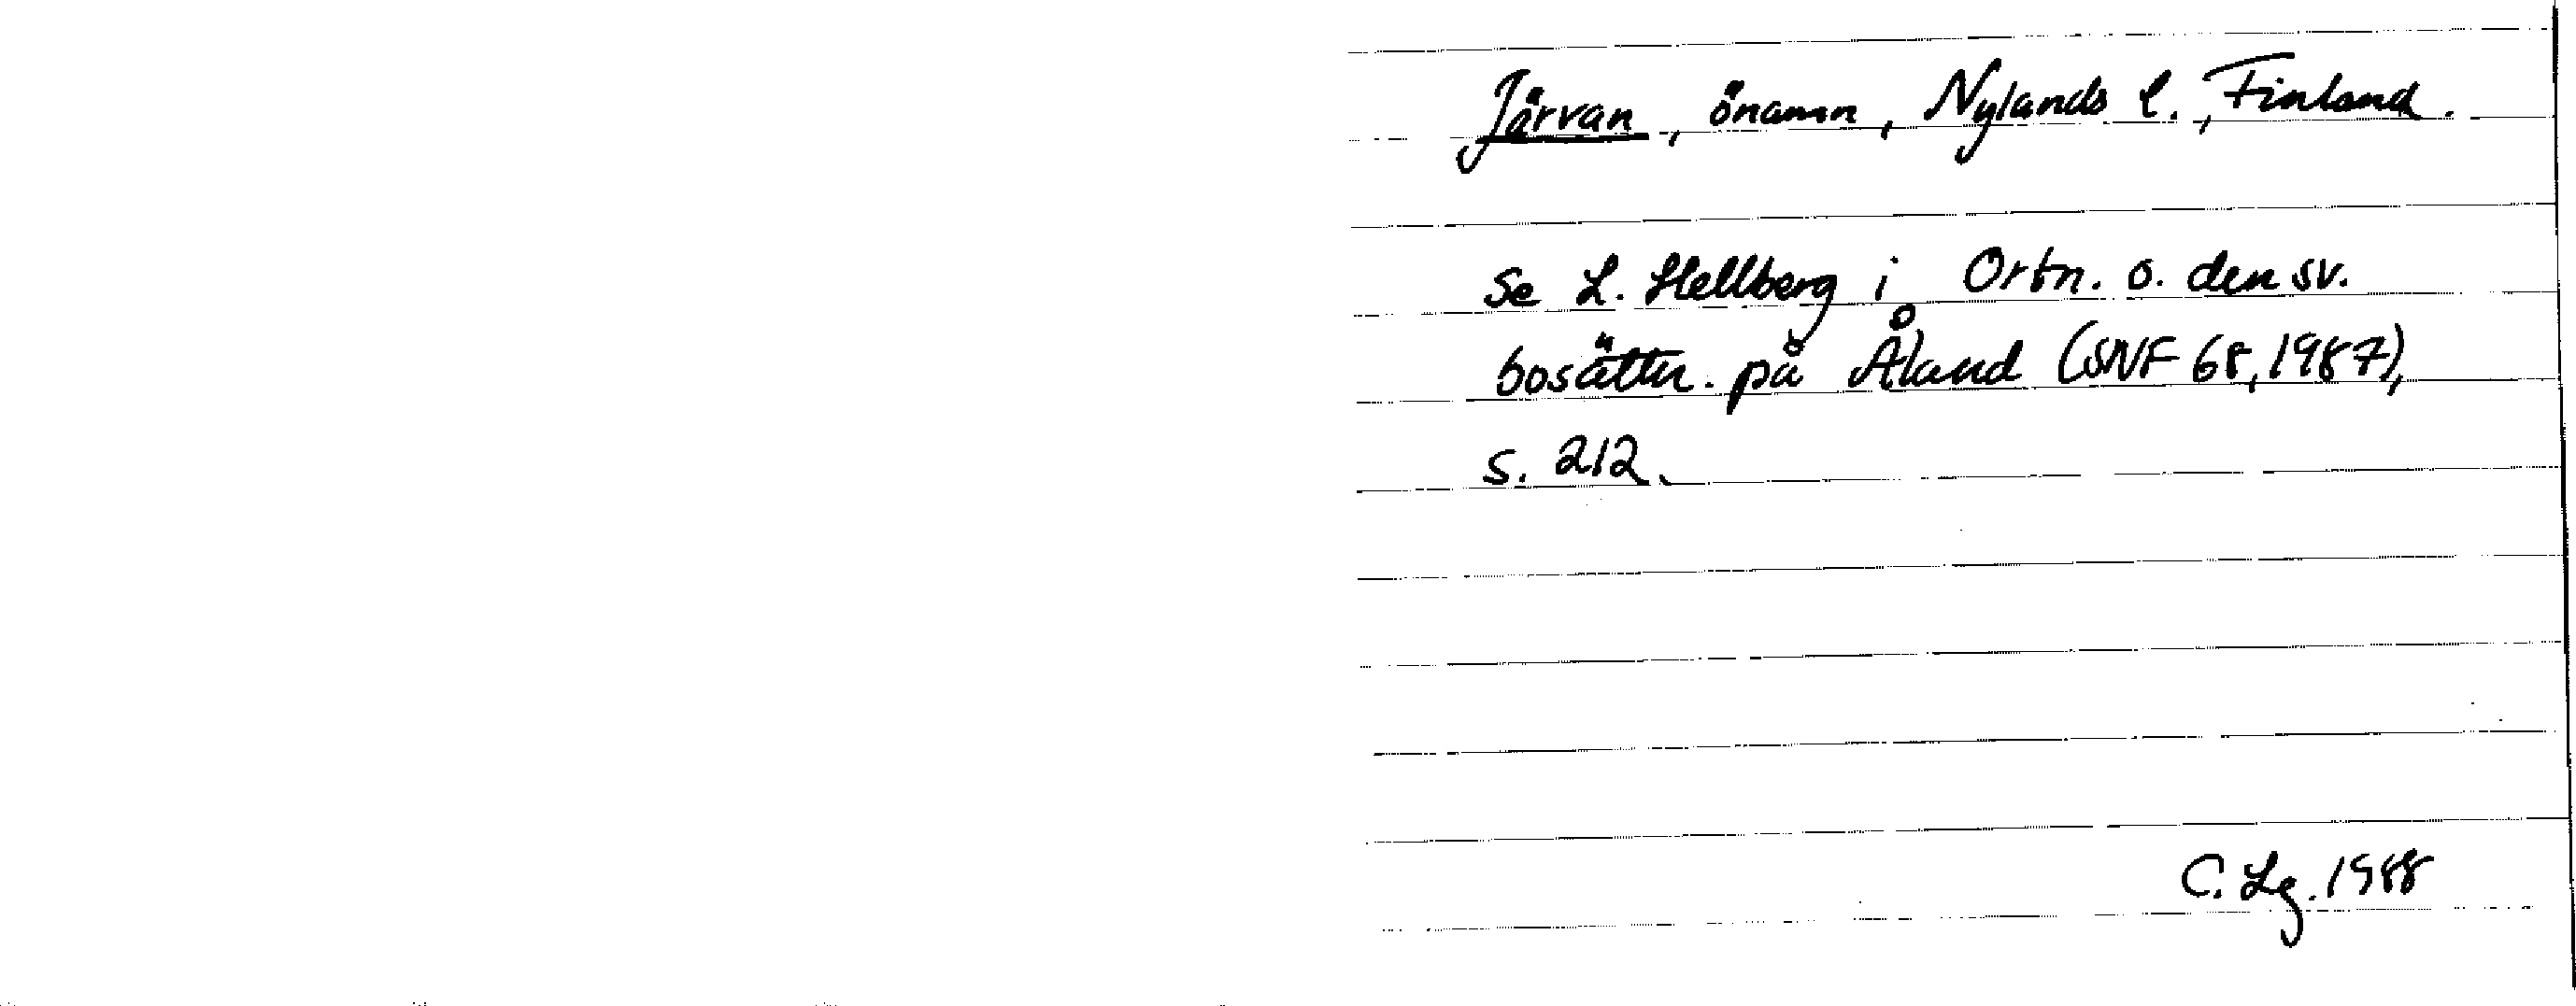 Järvan, önamn, Nylands l., Finland.
se L. Hellberg i Ortn. o. den sv.
bosättn. på Åland (SNF 68, 1987),
s. 212.
C. Lg. 1988